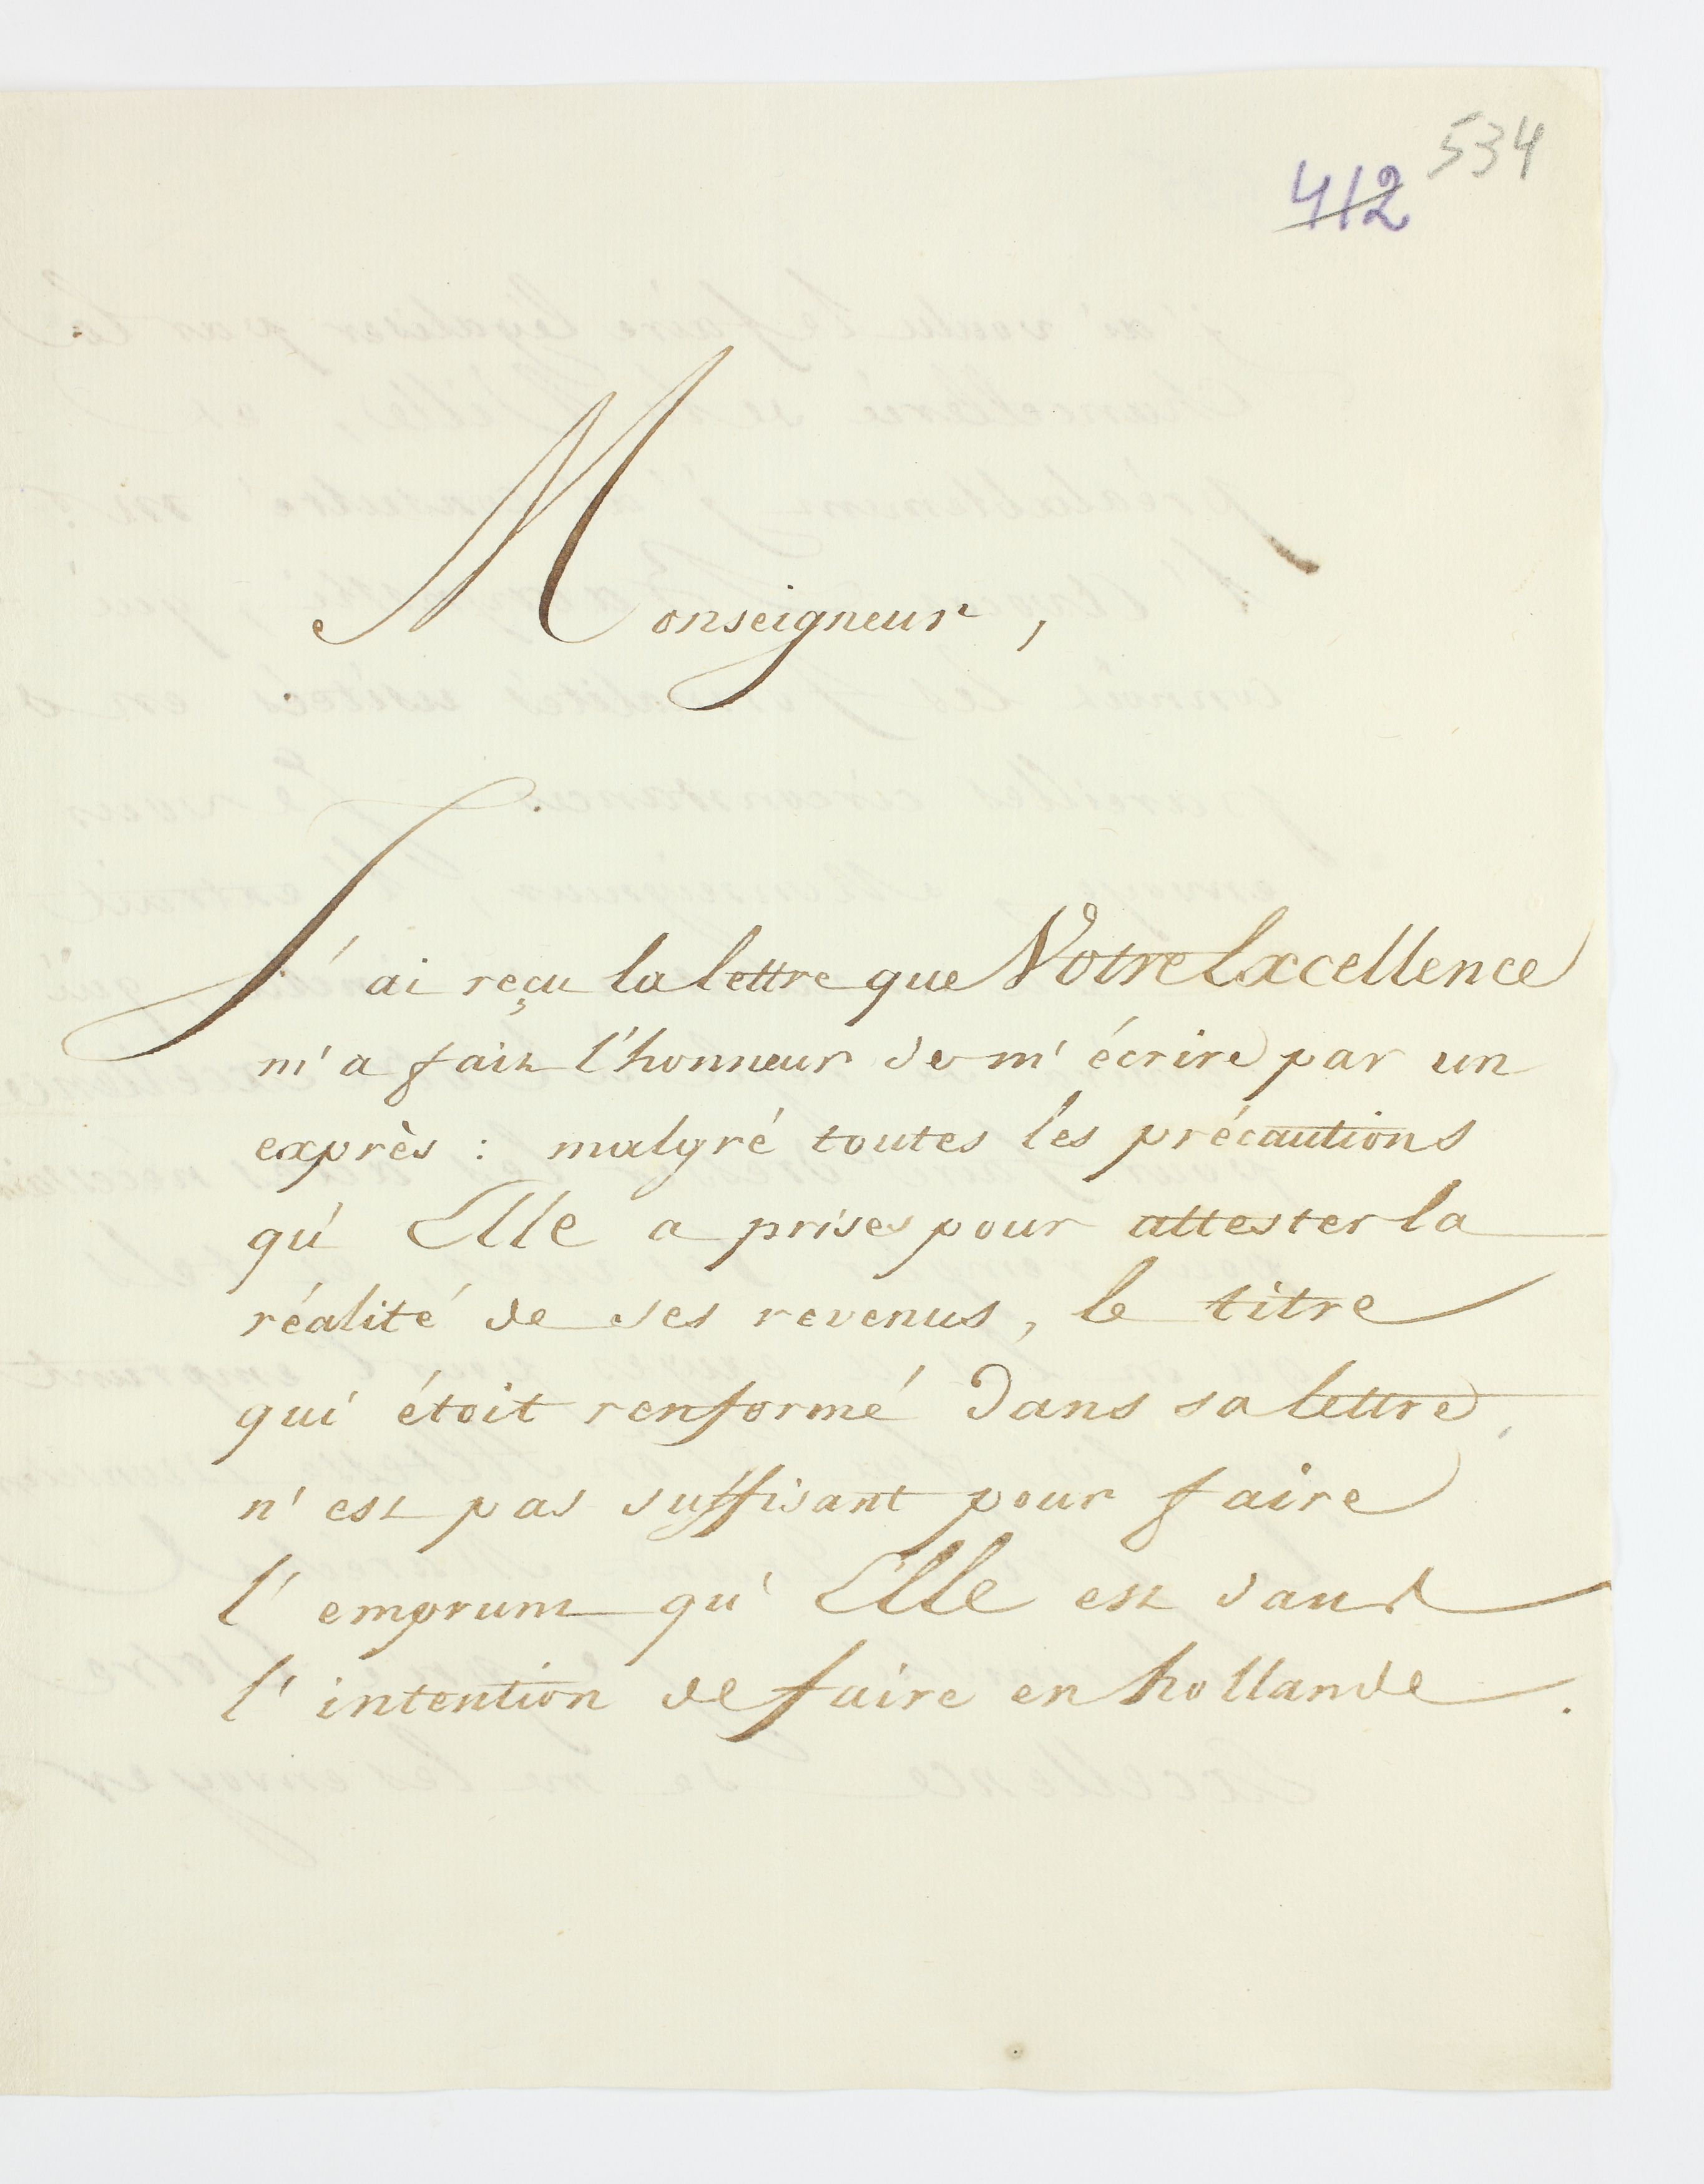 534
412
Monseigneur,
J'ai reçu la lettre que Votre Excellence
m'a fait l'honneur de m'écrire par un
exprès : malgré toutes les précautions
qu'Elle a prises pour attester la
réalité de ses revenus, le titre
qui étoit renformé dans sa lettre,
n'est pas suffisant pour faire
l'emprunt qu'Elle est dans
l'intention de faire en hollande.